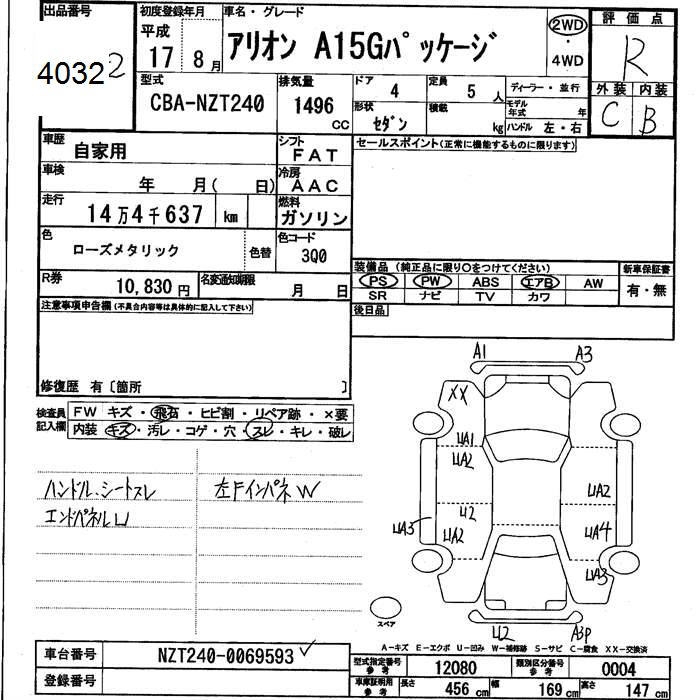 出品番号
40322
初度登録年月
平成
17 8月
車名・グレード
アリオン A15Gパッケージ
2WD
・
4WD
評価点
R
外装 内装
C B
型式
CBA-NZT240
排気量
1496
CC
ドア
4
定員
5 人
形状
セダン
積載
kg
ディーラー・並行
モデル年式 年
ハンドル 左・右
車歴
自家用
シフト
FAT
車検
年 月( 日)
冷房
AAC
走行
14万4千637 km
燃料
ガソリン
色
ローズメタリック
色替
色コード
3Q0
R券
10,830円
名変通知期限
月 日
セールスポイント(正常に機能するものに限ります)
装備品 (純正品に限り○をつけてください)
PS PW ABS エアB AW
SR ナビ TV カワ
新車保証書
有・無
後日品
注意事項申告欄(不具合内容等は具体的に記入して下さい)
修復歴 有〔箇所 〕
検査員記入欄
FW キズ・飛石・ヒビ割・リペア跡・×要
内装 キズ・汚レ・コゲ・穴・スレ・キレ・破レ
ハンドル、シートスレ
エンドパネルU
左FインパネW
A1 A3
XX
UA1
UA2
U2
UA2
UA3
UA2
UA4
UA3
U2 A3P
スペア
A-キズ E-エクボ U-凹み W-補修跡 S-サビ C-腐食 XX-交換済
車台番号 NZT240-0069593
登録番号
型式指定番号 参考 12080
類別区分番号 参考 0004
車庫証明用 参考 長さ 456 cm 幅 169 cm 高さ 147 cm